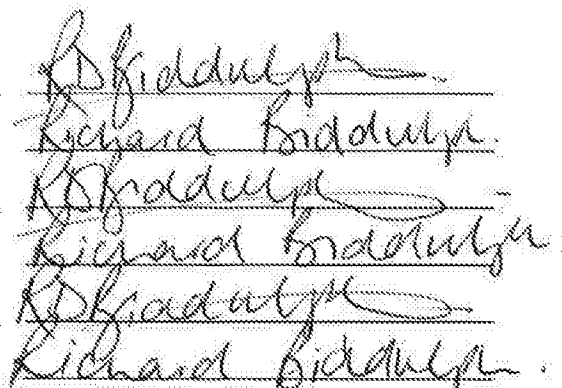 RDBiddulph
Richard Biddulph.
RDBiddulph
Richard Biddulph
RDBiddulph
Richard Biddulph.